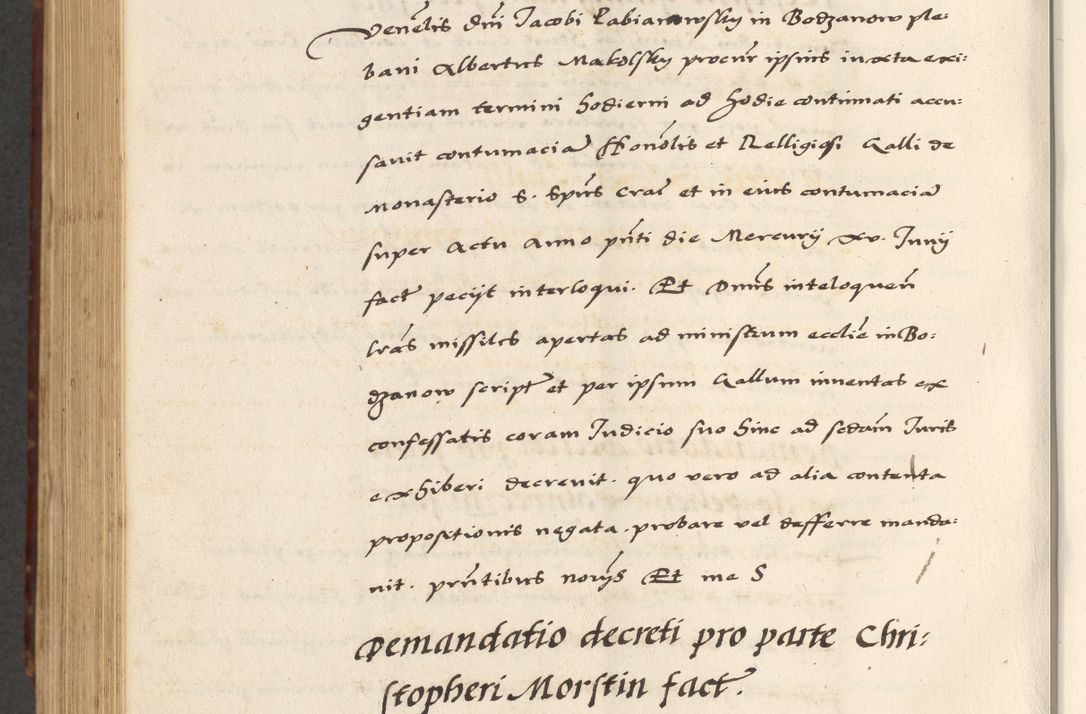 Venelis dni Jacobi Labianowsky in Bodzanow ple:
bani Albertus Makolsky procur ipsius iuxta exi:
gentiam termini hodierni ad hodie continuati accu:
savit contumacia Honolis et Relligiosi Galli de
Monasterio S. Spus Crac et in eius contumacia
super Actu Anno pnti die Mercurij xv. Junij
fact pecijt interloqui. Et Dnus inteloquen
lras missiles apertas ad ministrum ecclie in Bo:
dzanow script et per ipsum Gallum inventas ex
confessatis coram Judicio suo hinc ad sedam Juris
exhiberi decrevit. quo vero ad alia contenta
propositionis negata. probare vel defferre manda:
vit. pntibus novijs Et me S
Demandatio decreti pro parte Chri:
stopheri Morstin fact.